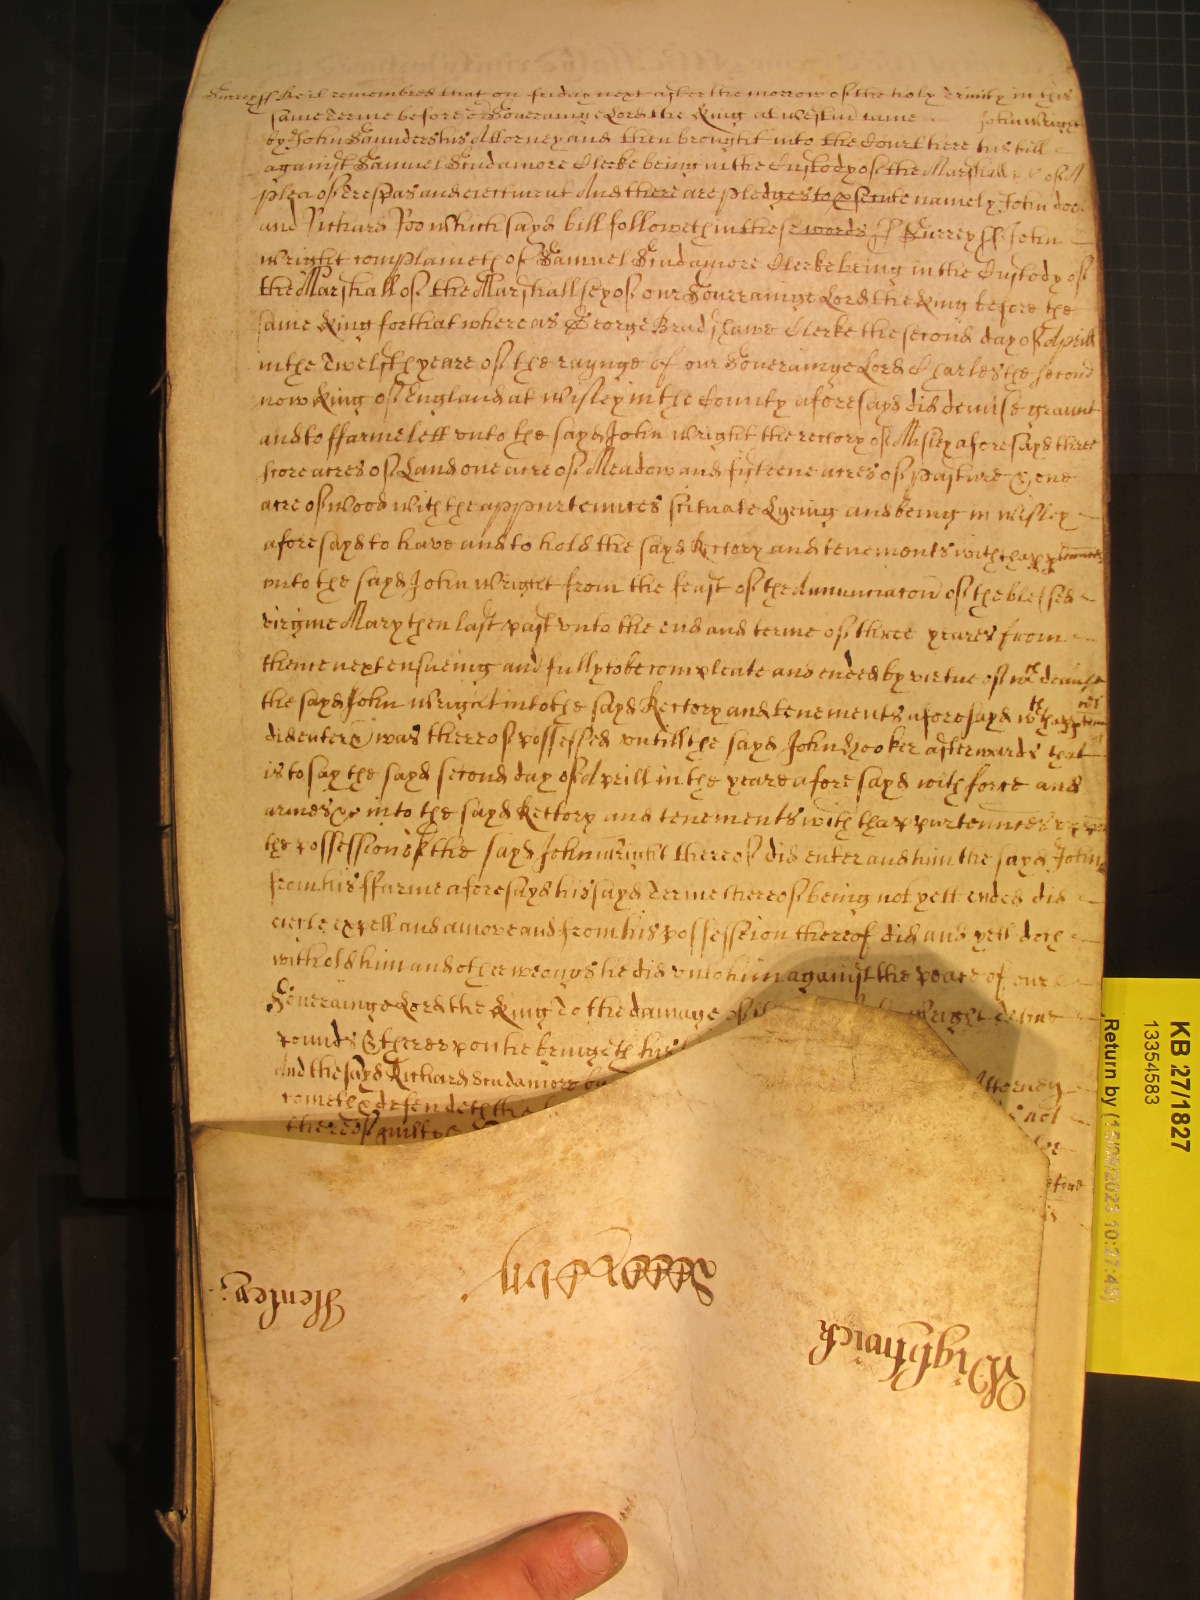 Surrey ss Be it remembred that on friday next after the morrow of the holy Trinity in this
same Terme before or Soveraigne Lord the King at Westm came John Wright
by John Saunders his Attorney and then brought into the Court here his bill
against Samuel Scudamore Clerke being in the Custody of the Marshall &c of A
plea of Trespas and eiectment And there are pledges to psecute namely John doe
and Richard Roo which sayd bill followeth in these words ss Surrey ss John
Wright complaineth of Samuel Scudamore Clerke being in the Custody of
the Marshall of the Marshallsey of our Soveraigne Lord the King before the
same King for that whereas George Bradshawe Clerke the second day of Aprill
in the Twelfth yeare of the raynge of our Soveraigne Lord Charles the second
now King of England at Wisley in the County aforesayd did demise graunt
and to ffarme lett unto the sayd John Wright the rectory of Wisley aforesayd three
score acres of Land one acre of Meadow and fifteene acres of pasture & one
acre of wood with the appurtennces scituate Lyeing and being in Wisley
aforesayd to have and to hold the sayd Rectory and tenements with thappurtennces
unto the sayd John Wright from the feast of the Annunciacon of the blessed
virgine Mary then last past unto the end and terme of three yeares from
thence next ensueing and fully to be compleate and ended by virtue of wch demise
the sayd John Wright into the sayd Rectory and tenements aforesayd wth thappurtennces
did enter & was thereof possessed untill the sayd John Hooker afterwards that
is to say the sayd second day of Aprill in the yeare aforesayd with force and
armes &c into the sayd Rectory and tenements with thappurtennces upon
the possession of the sayd John Wright thereof did enter and him the sayd John
from his ffarme aforesayd his sayd Terme thereof being not yett ended did
eiecte expell and amove and from his possession thereof did and yett doth
withold him and other wrongs he did unto him against the peace of our
Soveraigne Lord the King To the damage of Wright
pounds & thereupon he bringeth his
And the sayd Richard Scudamore by Attorney
cometh & defendeth the not
thereof guilty
before
Henley:
Wightwick
KB 27/1827
13354583
Return by (15/09/2023 10:27:45)